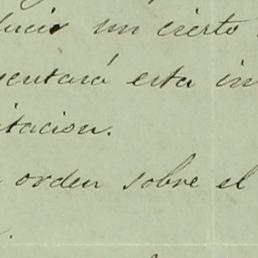 ucir un cierto
entará esta in
itacion.
orden sobre el